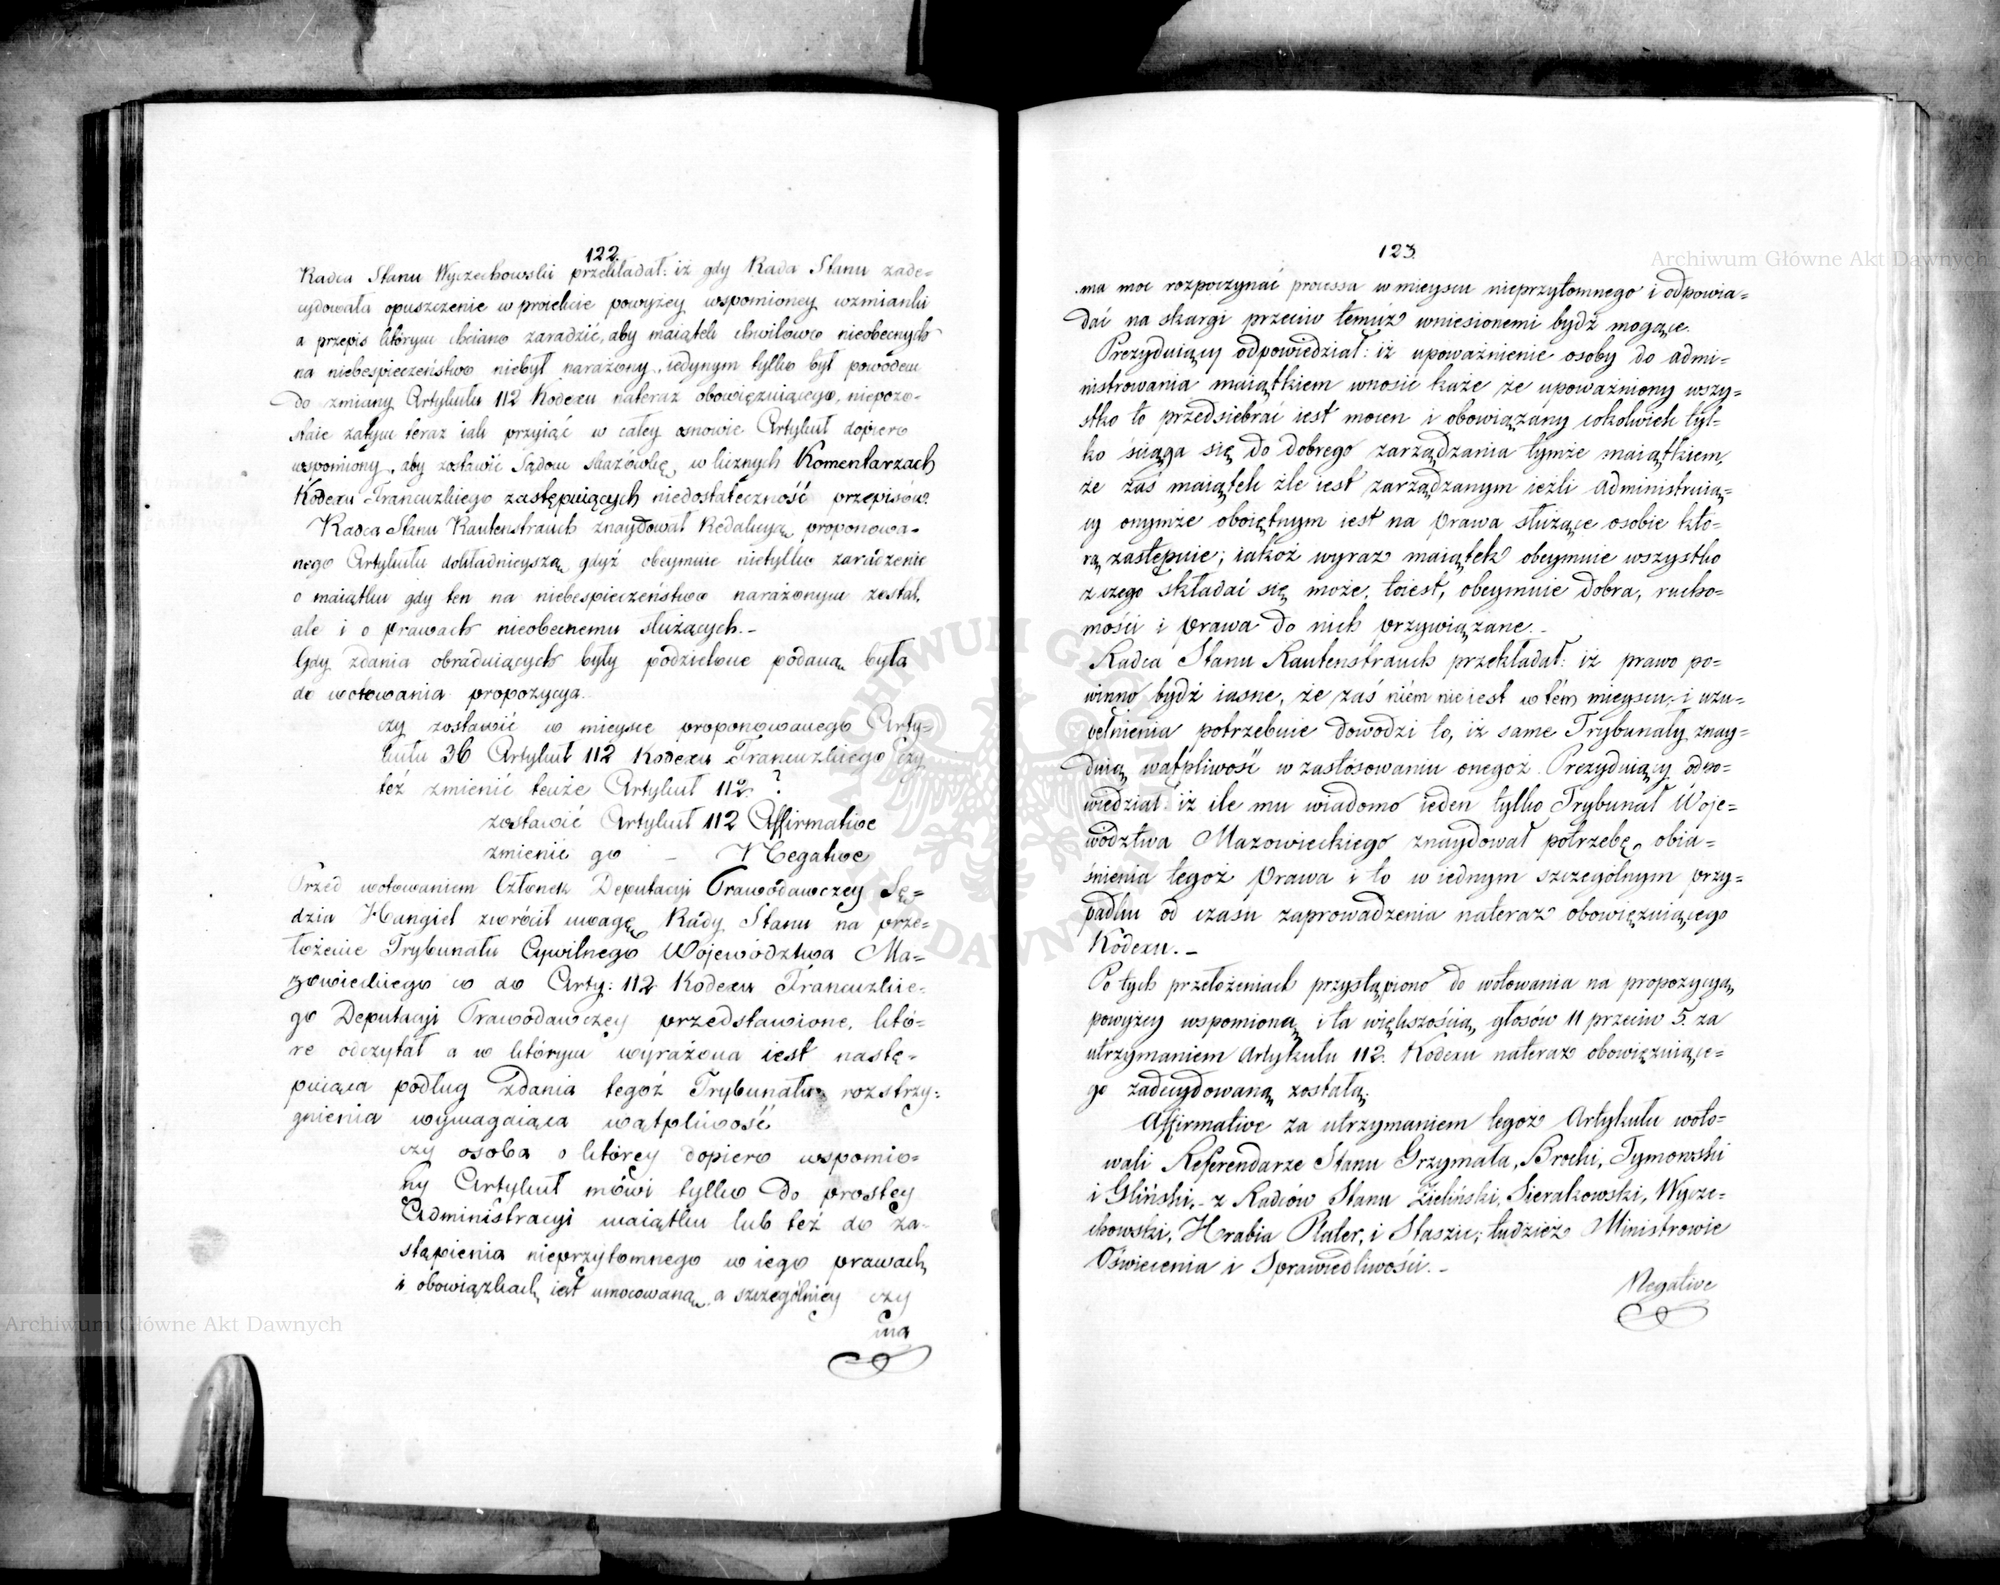 122.
Radca Stanu Wyczechowski przekładał: iż gdy Rada Stanu zade=
cydowała opuszczenie w proiekcie powyżey wspomnioney wzmianki
a przepis którym chciano zaradzić, aby maiątek chwilowo nieobecnych
na niebespieczeństwo niebył narażony, iedynym tylko był powodem
do zmiany Artykułu 112 Kodexu nateraz obowięzuiącego, niepozo-
staie zatym teraz iak przyiąć w całey osnowie Artykuł dopiero
wspomniony, aby zostawić Sądom skazówkę, w licznych Komentarzach
Kodexu Francuzkiego zastępuiących niedostateczność przepisów.
Radca Stanu Rautenstrauch znaydował Redakcyą proponowa-
nego Artykułu dokładnieyszą gdyż obeymuie nietylko zaradzenie
o maiątku gdy ten na niebespieczeństwo narażonym został,
ale i o prawach nieobecnemu służących. -
Gdy zdania obraduiących były podzielone podaną była
do wotowania propozycya.
czy zostawić w mieysce proponowanego Arty=
kułu 36 Artykuł 112 Kodexu Francuzkiego czy
też zmienić tenże Artykuł 112. ?
zostawić Artykuł 112 Affirmative
zmienić go - Negative
Przed wotowaniem Członek Deputacyi Prawodawczey Sę=
dzia Hangiel zwrócił uwagę Rady Stanu na prze=
łożenie Trybunału Cywilnego Województwa Ma=
zowieckiego co do Arty: 112 Kodexu Francuzkie-
go Deputacyi Prawodawczey przedstawione, któ=
re odczytał a w którym wyrażona iest nastę-
puiąca podług zdania tegoż Trybunału rozstrzy=
gnienia wymagaiąca wątpliwość
czy osoba o którey dopiero wspomnio=
ny Artykuł mówi tylko do prostey
Administracyi maiątku lub też do za-
stąpienia nieprzytomnego w iego prawach
i obowiązkach iest umocowaną, a szczególniey czy
ma
123.
ma moc rozpoczynać processa w mieyscu nieprzytomnego i odpowia=
dać na skargi przeciw temuż wniesionemi bydź mogące.
Prezyduiący odpowiedział: iż upoważnienie osoby do admi=
nistrowania maiątkiem wnosić każe że upoważniony wszy=
stko to przedsiebrać iest mocen i obowiązany cokolwiek tyl=
ko ściąga się do dobrego zarządzania tymże maiątkiem,
że zaś maiątek źle iest zarządzanym ieżli administruią=
cy onymże oboiętnym iest na prawa służące osobie któ=
rą zastępuie; iakoż wyraz maiątek obeymuie wszystko
z czego składać się może, toiest, obeymuie dobra, rucho=
mości i prawa do nich przywiązane. -
Radca Stanu Rautenstrauch przekładał: iż prawo po=
winno bydź iasne, że zaś niém nie iest w tém mieyscu, i uzu=
pełnienia potrzebuie dowodzi to, iż same Trybunały znay=
duią wątpliwość w zastósowaniu onegoż. Prezyduiący odpo=
wiedział: iż ile mu wiadomo ieden tylko Trybunał Woje=
wództwa Mazowieckiego znaydował potrzebę obia=
śnienia tegoż prawa i to w iednym szczególnym przy=
padku od czasu zaprowadzenia nateraz obowięzuiącego
Kodexu. -
Po tych przełożeniach przystąpiono do wotowania na propozycyą
powyżey wspomnioną i ta większością głosów 11 przeciw 5. za
utrzymaniem Artykułu 112. Kodexu nateraz obowięzuiące=
go zadecydowaną została.
Affirmative za utrzymaniem tegoż Artykułu woto=
wali Referendarze Stanu Grzymała, Brocki, Tymowski
i Gliński, - z Radców Stanu Zieliński, Sierakowski, Wycze=
chowski, Hrabia Plater, i Staszic; tudzież Ministrowie
Oświecenia i Sprawiedliwości. -
Negative
Archiwum Główne Akt Dawnych
Archiwum Główne Akt Dawnych
ARCHIWUM GŁÓWNE AKT DAWNYCH